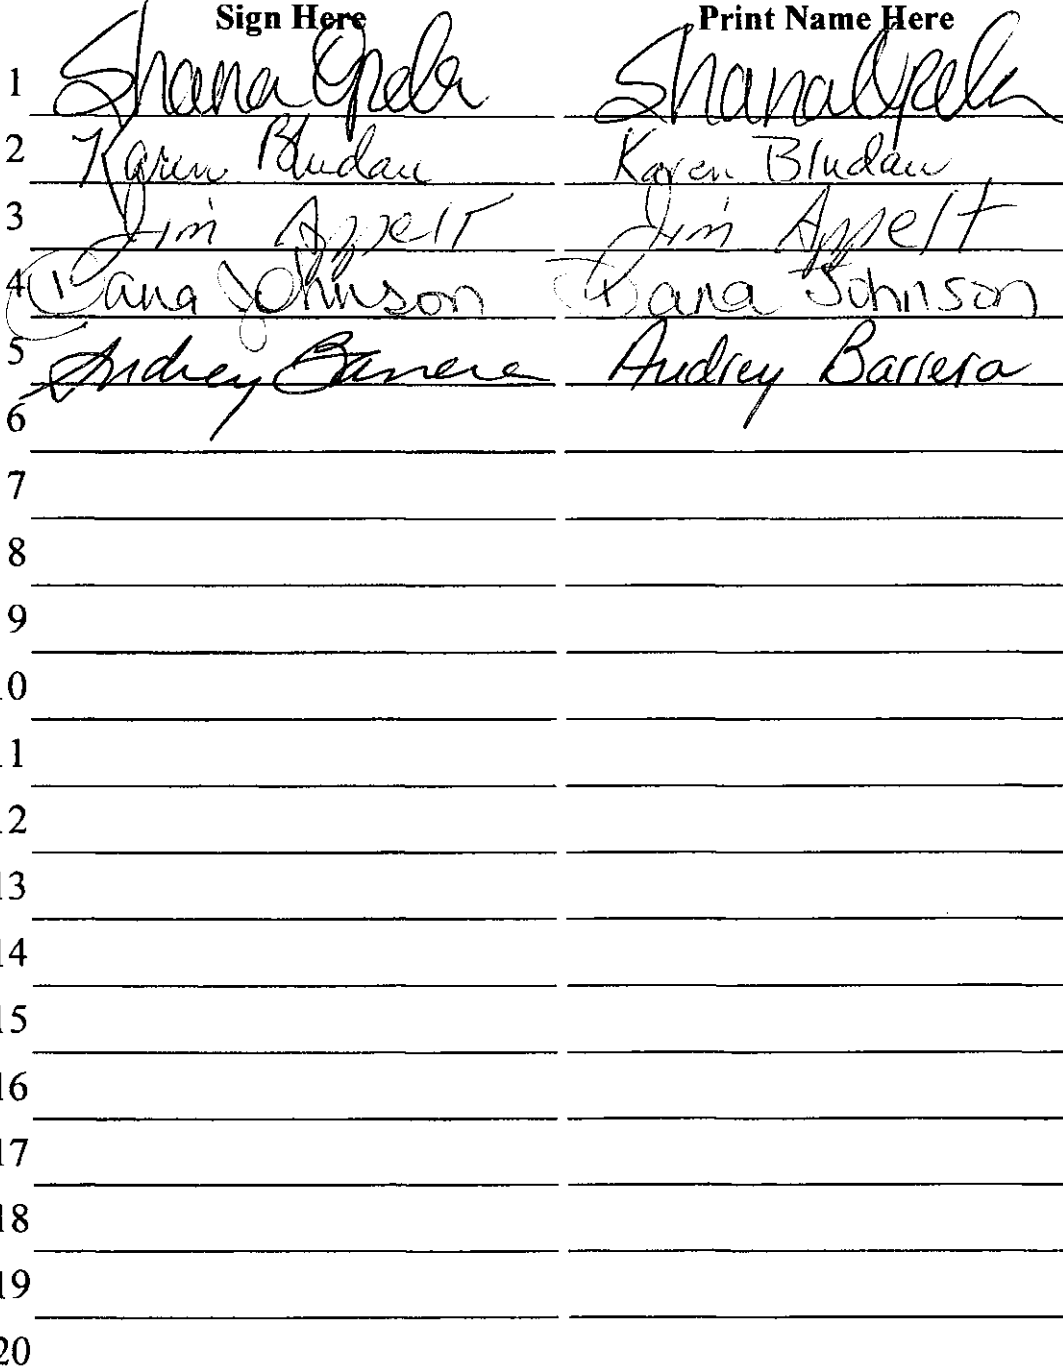 Sign Here Print Name Here
1 Shana Opela Shana Opela
2 Karen Bludau Karen Bludau
3 Jim Appelt Jim Appelt
4 Dana Johnson Dana Johnson
5 Audrey Barrera Audrey Barrera
6
7
8
9
10
11
12
13
14
15
16
17
18
19
20